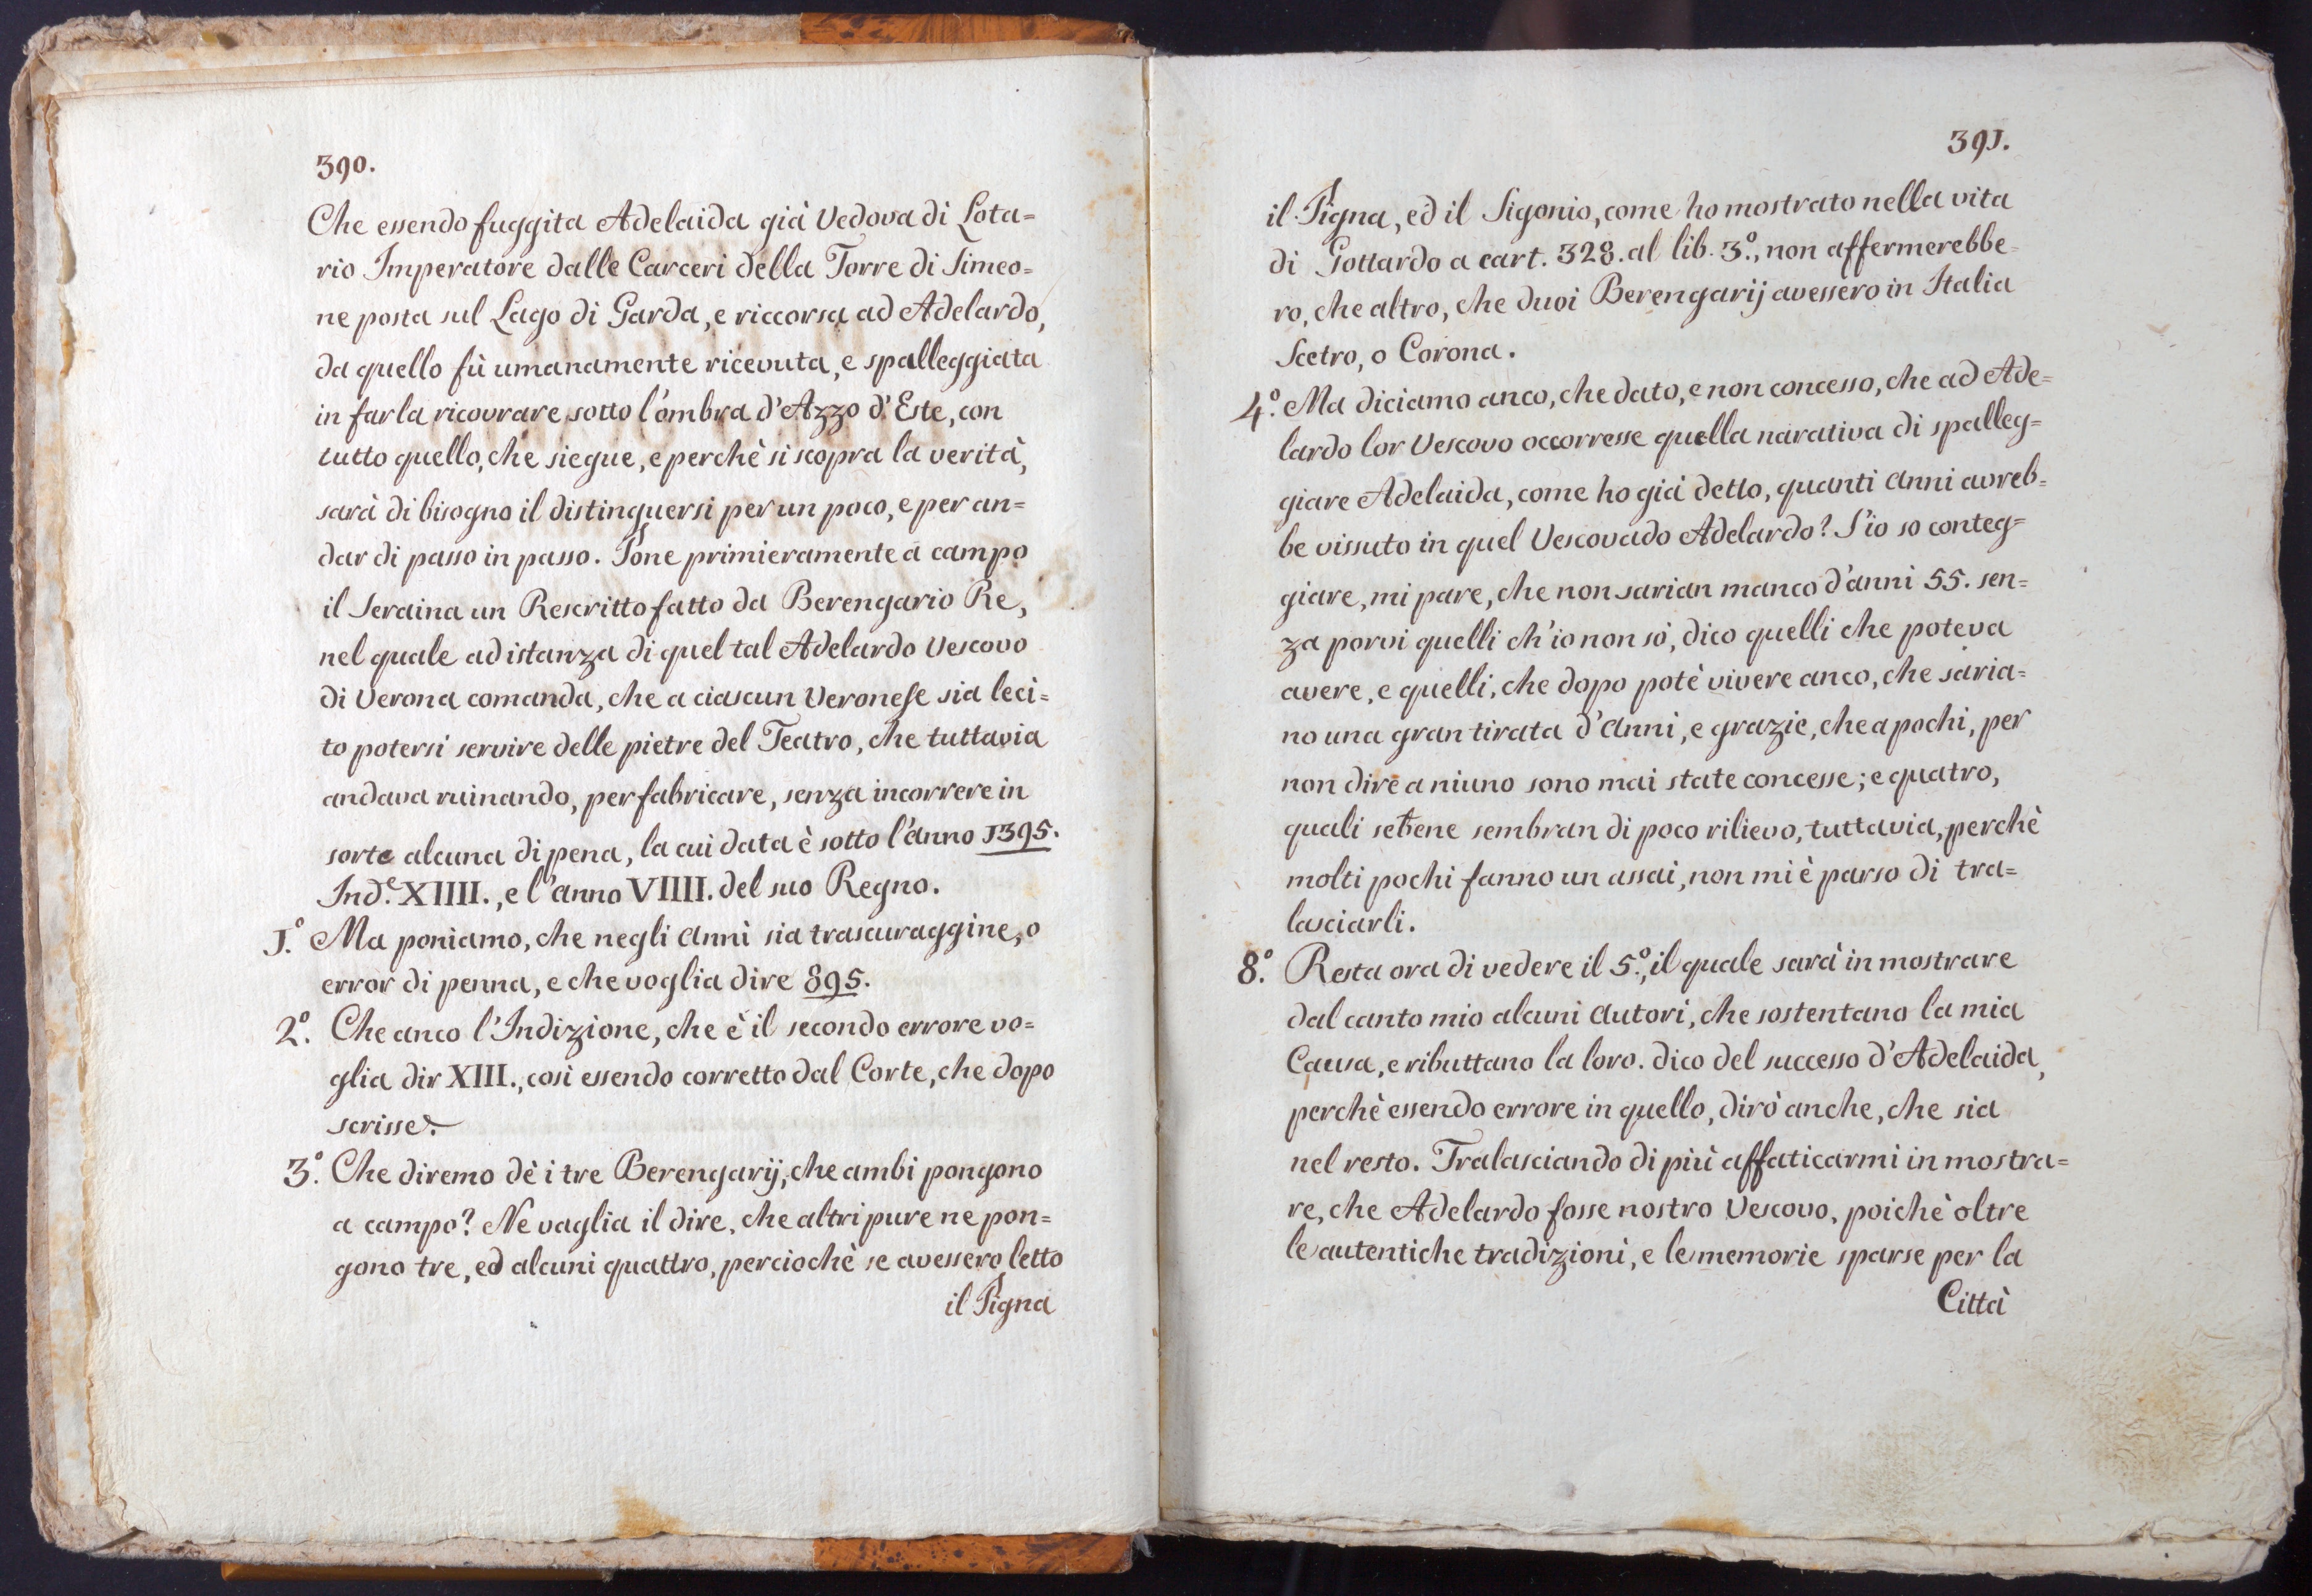 390.
Che essendo fuggita Adelaida già Vedova di Lota=
rio Imperatore dalle Carceri della Torre di Simeo=
ne posta sul Lago di Garda, e riccorsa ad Adelardo,
da quello fù umanamente ricevuta, e spalleggiata
in farla ricovrare sotto l'ombra d'Azzo d'Este, con
tutto quello, che siegue, e perchè si scopra la verità,
sarà di bisogno il distinguersi per un poco, e per an=
dar di passo in passo. Pone primieramente a campo
il Seraina un Rescritto fatto da Berengario Re,
nel quale ad istanza di quel tal Adelardo Vescovo
di Verona comanda, che a ciascun Veronese sia leci=
to potersi servire delle pietre del Teatro, che tuttavia
andava ruinando, per fabricare, senza incorrere in
sorte alcuna di pena, la cui data è sotto l'anno 1395.
Ind.e XIIII., e l'anno VIIII. del suo Regno.
1.o Ma poniamo, che negli anni sia trascuraggine, o
error di penna, e che voglia dire 895.
2.o Che anco l'Indizione, che è il secondo errore vo=
glia dir XIII., così essendo corretto dal Corte, che dopo
scrisse.
3.o Che diremo dè i tre Berengarij, che ambi pongono
a campo? Ne vaglia il dire, che altri pure ne pon=
gono tre, ed alcuni quattro, perciochè se avessero letto
il Pigna
391.
il Pigna, ed il Sigonio, come ho mostrato nella vita
di Gottardo a cart. 328. al lib. 3.o, non affermerebbe=
ro, che altro, che duoi Berengarij avessero in Italia
Scetro, o Corona.
4.o Ma diciamo anco, che dato, e non concesso, che ad Ade=
lardo lor Vescovo occorresse quella narativa di spalleg=
giare Adelaida, come ho già detto, quanti anni avreb=
be vissuto in quel Vescovado Adelardo? S'io so conteg=
giare, mi pare, che non sarian manco d'anni 55. sen=
za porvi quelli ch'io non sò, dico quelli che poteva
avere, e quelli, che dopo potè vivere anco, che saria=
no una gran tirata d'anni, e grazie, che a pochi, per
non dire a niuno sono mai state concesse; e quatro,
quali sebene sembran di poco rilievo, tuttavia, perchè
molti pochi fanno un assai, non mi è parso di tra=
lasciarli.
8.o Resta ora di vedere il 5.o, il quale sarà in mostrare
dal canto mio alcuni autori, che sostentano la mia
Causa, e ributtano la loro. dico del successo d'Adelaida,
perchè essendo errore in quello, dirò anche, che sia
nel resto. Tralasciando di più affaticarmi in mostra=
re, che Adelardo fosse nostro Vescovo, poichè oltre
le autentiche tradizioni, e le memorie sparse per la
Città